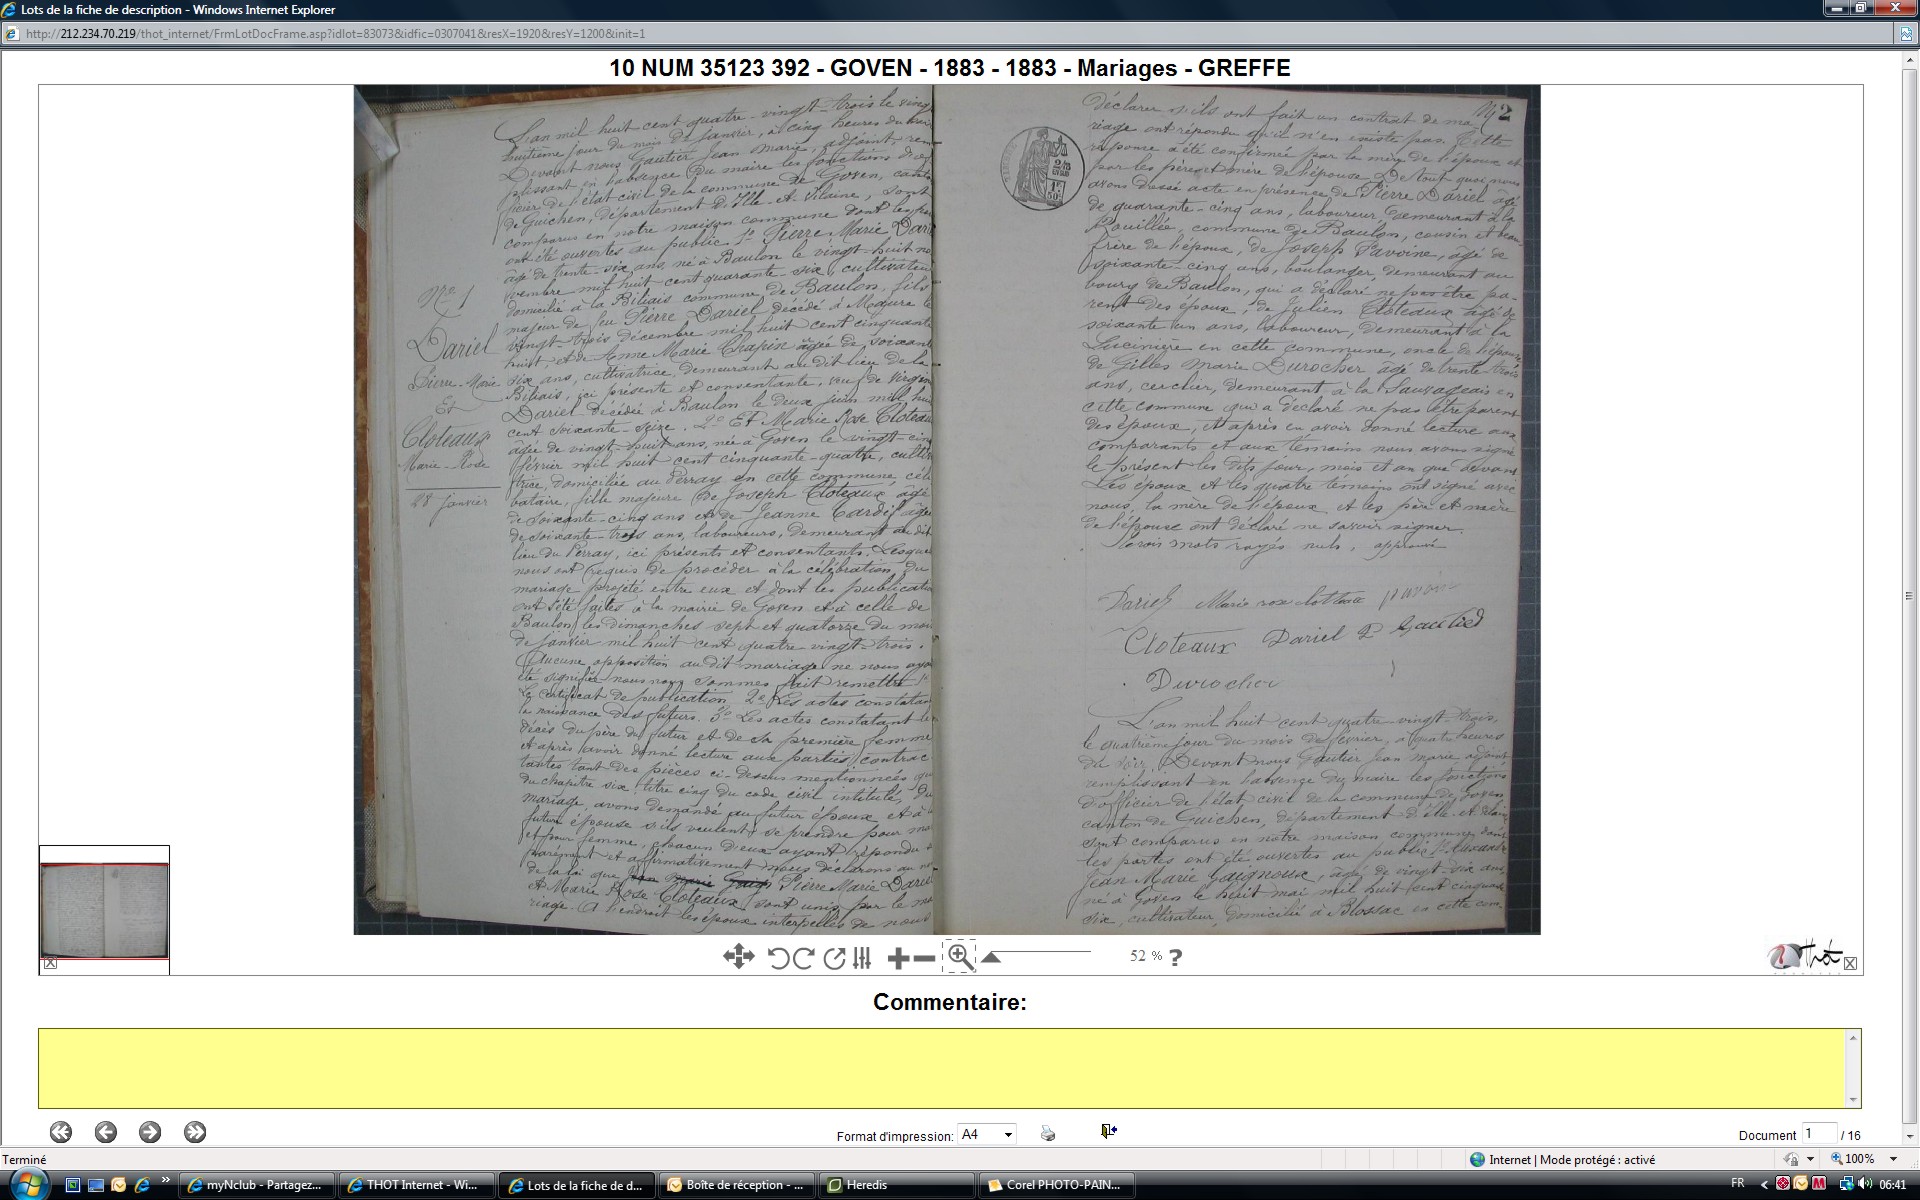 Lots de la fiche de description - Windows Internet Explorer
http://212.234.70.219/thot_internet/FrmLotDocFrame.asp?idlot=83073&idfic=0307041&resX=1920&resY=1200&init=1
10 NUM 35123 392 - GOVEN - 1883 - 1883 - Mariages - GREFFE
L'an mil huit cent quatre-vingt-trois le vingt
huitième jour du mois de janvier, à cinq heures du
Devant nous Gautier Jean Marie, adjoint, rem
plissant en l'absence du maire les fonctions d'of
ficier de l'état civil de la commune de Goven, canton
de Guichen, département d'Ille-et-Vilaine, sont
comparus en notre maison commune dont les por
ont été ouvertes au public 1° Pierre Marie Dari
âgé de trente-six ans, né à Baulon le vingt-huit no
vembre mil huit cent quarante-six, cultivateur
domicilié à la Biliais commune de Baulon, fils
majeur de feu Pierre Dariel décédé à Mogure le
vingt-trois décembre mil huit cent cinquante
huit, et de Anne Marie Chapin âgée de soixante
six ans, cultivatrice, demeurant au dit lieu de la
Biliais, ici présente et consentante, veuf de Virgin
Dariel décédée à Baulon le deux juin mil huit
cent soixante-seize. 2° Et Marie Rose Cloteau
âgée de vingt-huit ans, née à Goven le vingt-cinq
février mil huit cent cinquante-quatre, culti
trice, domiciliée au Perray en cette commune, céli
bataire, fille majeure de Joseph Cloteaux âgé
de soixante-cinq ans et de Jeanne Tardif âgée
de soixante-trois ans, laboureurs, demeurant au dit
lieu du Perray, ici présents et consentants. Lesquel
nous ont requis de procéder à la célébration du
mariage projeté entre eux et dont les publication
ont été faites à la mairie de Goven et à celle de
Baulon les dimanches sept et quatorze du mois
de janvier mil huit cent quatre-vingt-trois.
Aucune opposition au dit mariage ne nous ayan
été signifiée nous nous sommes fait remettre 1°
Le certificat de publication 2° Les actes constatan
la naissance des futurs. 3° Les actes constatant le
décès du père du futur et de sa première femme
et après avoir donné lecture aux parties contrac
tantes tant des pièces ci-dessus mentionnées qu
du chapitre six titre cinq du code civil intitulé, du
mariage, avons demandé au futur époux et à la
future épouse s'ils veulent se prendre pour mari
et pour femme, chacun d'eux ayant répondu sé
parément et affirmativement nous déclarons au nom
de la loi que Pierre Marie Dariel
et Marie Rose Cloteaux sont unis par le ma
riage. A l'endroit les époux interpellés de nous
N° 1
Dariel
Pierre-Marie
Et
Cloteaux
Marie-Rose
28 janvier
2
déclarer s'ils ont fait un contrat de ma
riage ont répondu qu'il n'en existe pas. Cette
réponse a été confirmée par la mère de l'époux et
par les père et mère de l'épouse. De tout quoi nous
avons dressé acte en présence de Pierre Dariel âgé
de quarante-cinq ans, laboureur demeurant à la
Rouillée, commune de Baulon, cousin et beau
frère de l'époux, de Joseph Pavoine, âgé de
soixante-cinq ans, boulanger, demeurant au
bourg de Baulon, qui a déclaré ne pas être pa-
rent des époux, de Julien Cloteaux âgé de
soixante un ans, laboureur, demeurant à la
Lucinière en cette commune, oncle de l'épouse
de Gilles Marie Durocher âgé de trente-trois
ans, cerclier, demeurant à la Sauvageais en
cette commune qui a déclaré ne pas être parent
des époux, et après en avoir donné lecture aux
comparants et aux témoins nous avons signé
le présent les dits jour, mois et an que devant
Les époux et les quatre témoins ont signé avec
nous, la mère de l'époux et les père et mère
de l'épouse ont déclaré ne savoir signer.
Trois mots rayés nuls, approuvé
Dariel Marie rose
Cloteaux Dariel P Gautier
Durocher
L'an mil huit cent quatre-vingt-trois,
le quatrième jour du mois de février, à quatre heures
du soir Devant nous Gautier Jean Marie adjoint
remplissant en l'absence du maire les fonctions
d'officier de l'état civil de la commune de Goven
canton de Guichen, département d'Ille-et-Vilaine
sont comparus en notre maison commune dont
les portes ont été ouvertes au public 1°
Jean Marie Gaignoux, âgé de vingt-six ans
né à Goven le huit mai mil huit cent cinquante
six, cultivateur, domicilié à Blossac en cette com.
52 % ?
Thot
Commentaire:
Format d'impression: A4
Document 1 / 16
Terminé
Internet | Mode protégé : activé
100%
myNclub - Partagez...
THOT Internet - Wi...
Lots de la fiche de d...
Boîte de réception - ...
Heredis
Corel PHOTO-PAIN...
FR
06:41